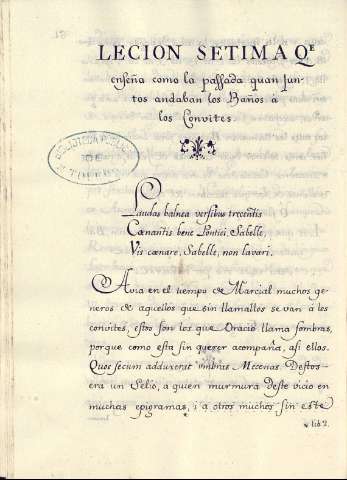 LECION SETIMA Q.E
enseña como la passada quan jun-
tos andaban los Baños à
los Convites.
BIBLIOTECA PUBLICA
DE
Laudas balnea versibus trecentis
Cœnantis bene Pontici, Sabelle,
Vis cœnare, Sabelle, non lavari.
Avia en el tiempo de Marcial muchos ge-
neros de aquellos que sin llamallos se van à los
convites, estos son los que Oracio llama sombras,
porque como esta sin querer acompaña, asi ellos.
Quos secum adduxerat umbras Mecenas. Destos
era un Selio, a quien murmura deste vicio en
muchas epigramas, i a otros muchos sin este
lib 2.